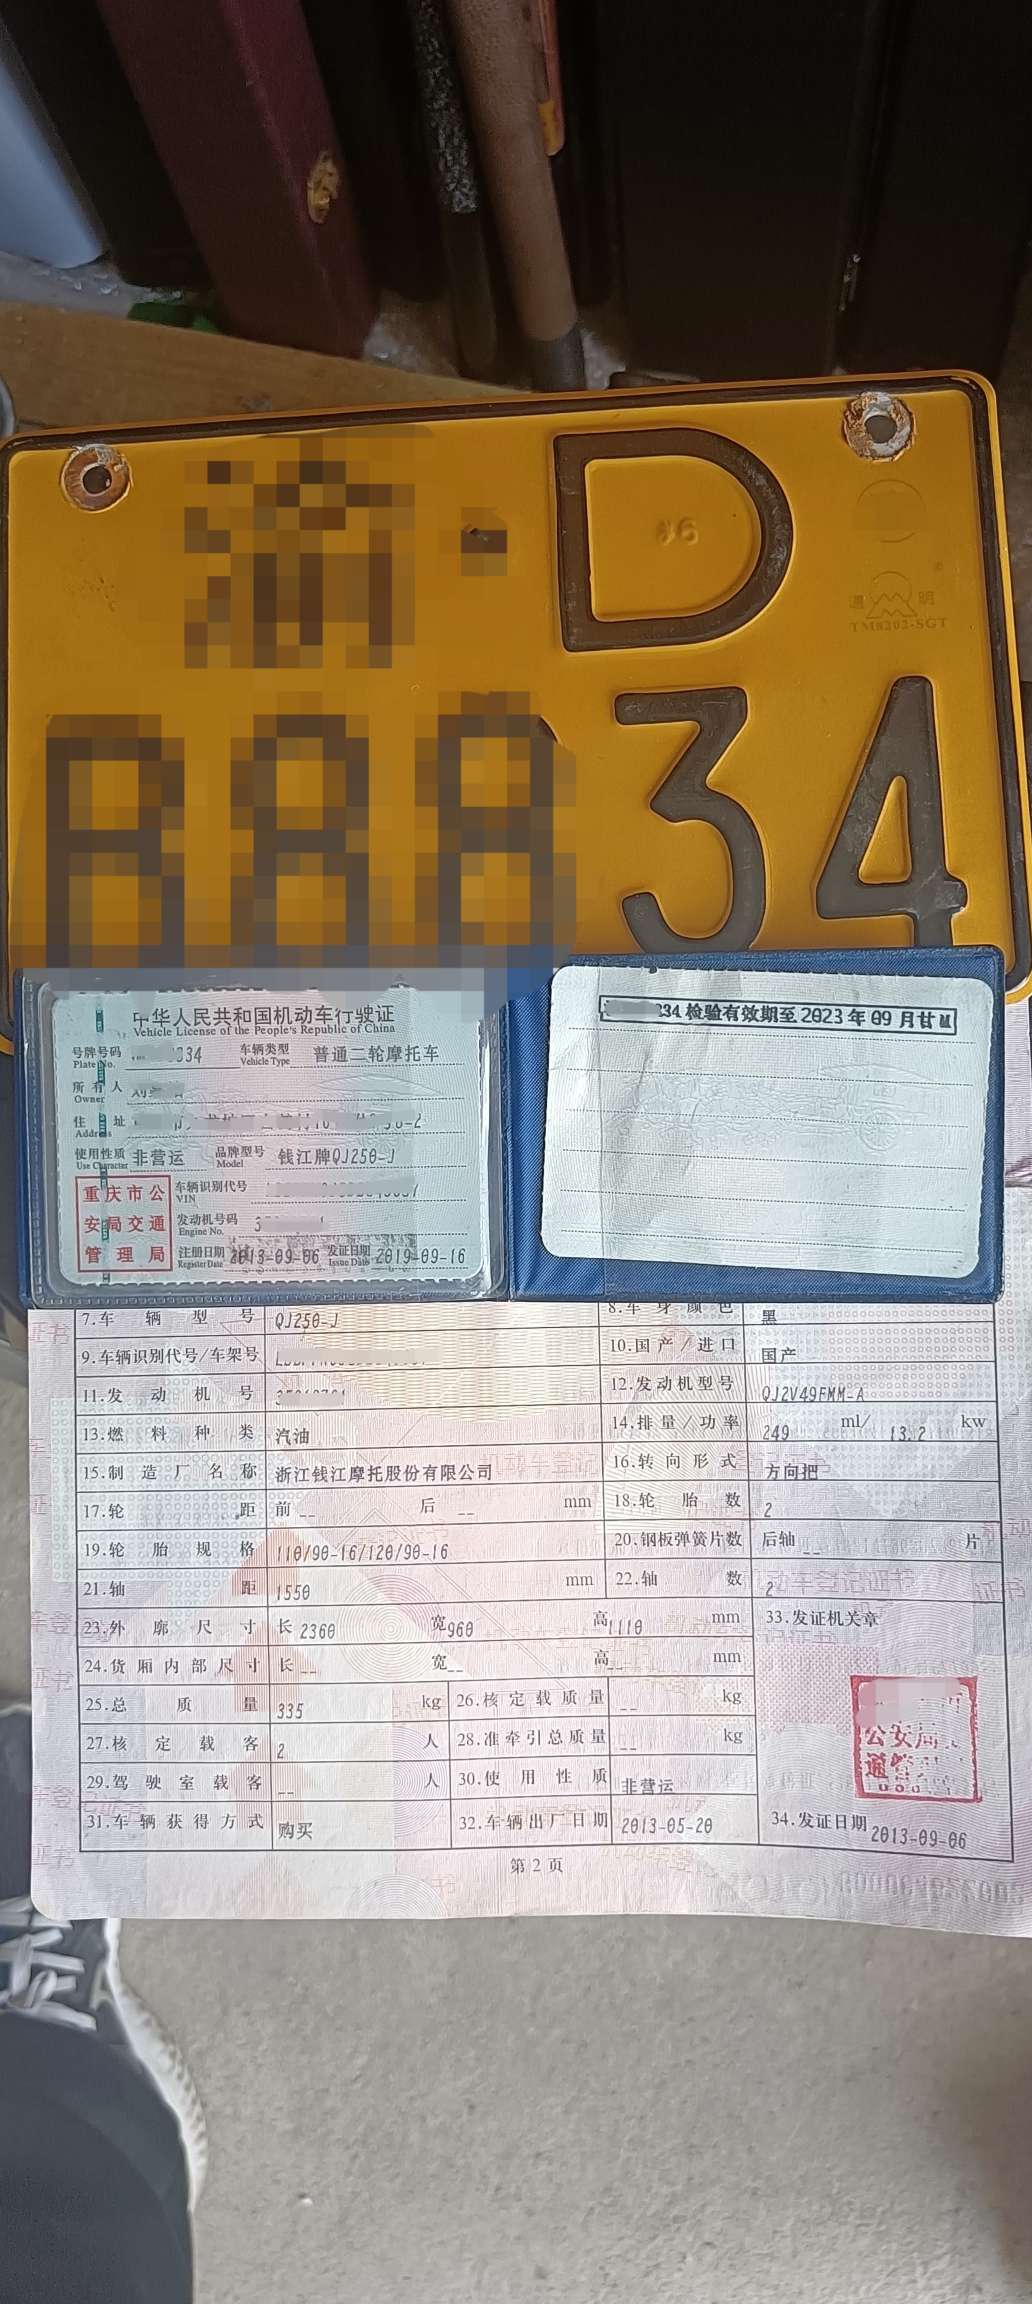 D
96
通 明
TM8202-SGT
34
中华人民共和国机动车行驶证
Vehicle License of the People's Republic of China
号牌号码 334 车辆类型 普通二轮摩托车
Plate No. Vehicle Type
所有人
Owner
住址 -2
Address
使用性质 非营运 品牌型号 钱江牌QJ250-J
Use Character Model
重庆市公安局交通管理局
车辆识别代号
VIN
发动机号码 3
Engine No.
注册日期 2013-09-06 发证日期 2019-09-16
Register Date Issue Date
234 检验有效期至 2023 年 09 月
7.车辆型号 QJ250-J 8.车身颜色 黑
9.车辆识别代号/车架号 10.国产/进口 国产
11.发动机号 12.发动机型号 QJ2V49FMM-A
13.燃料种类 汽油 14.排量/功率 249 ml/ 13.2 kw
15.制造厂名称 浙江钱江摩托股份有限公司 16.转向形式 方向把
17.轮距 前 -- 后 -- mm 18.轮胎数 2
19.轮胎规格 110/90-16/120/90-16 20.钢板弹簧片数 后轴 -- 片
21.轴距 1550 mm 22.轴数 2
23.外廓尺寸 长 2360 宽 960 高 1110 mm 33.发证机关章
24.货厢内部尺寸 长 -- 宽 -- 高 -- mm
25.总质量 335 kg 26.核定载质量 -- kg
27.核定载客 2 人 28.准牵引总质量 -- kg
公安局
通管
29.驾驶室载客 -- 人 30.使用性质 非营运
31.车辆获得方式 购买 32.车辆出厂日期 2013-05-20 34.发证日期 2013-09-06
第 2 页